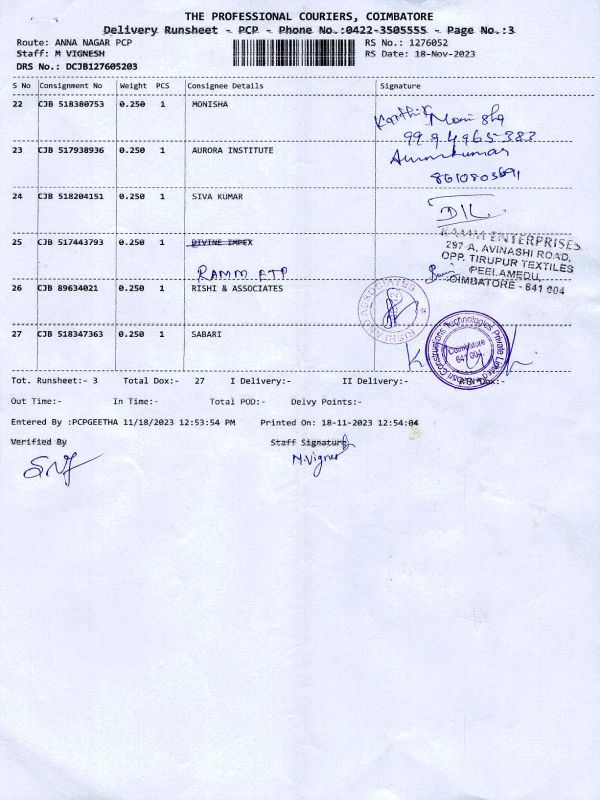 THE PROFESSIONAL COURIERS, COIMBATORE
Delivery Runsheet - PCP - Phone No.:0422-3505555 - Page No.:3
Route: ANNA NAGAR PCP RS No.: 1276052
Staff: M VIGNESH RS Date: 18-Nov-2023
DRS No.: DCJB127605203
S No Consignment No Weight PCS Consignee Details Signature
22 CJB 518380753 0.250 1 MONISHA
Monisha
9994965383
23 CJB 517938936 0.250 1 AURORA INSTITUTE
Arunkumar
8610803691
24 CJB 518204151 0.250 1 SIVA KUMAR
25 CJB 517443793 0.250 1 DIVINE IMPEX
RAMM ETP
RAMM ENTERPRISES
297-A, AVINASHI ROAD,
OPP. TIRUPUR TEXTILES
PEELAMEDU,
COIMBATORE - 641 004
26 CJB 89634021 0.250 1 RISHI & ASSOCIATES
RISHI ASSOCIATES
27 CJB 518347363 0.250 1 SABARI
Constructions Technologies Private Limited
Coimbatore
641 004
Tot. Runsheet:- 3 Total Dox:- 27 I Delivery:- II Delivery:- Dox:-
Out Time:- In Time:- Total POD:- Delvy Points:-
Entered By :PCPGEETHA 11/18/2023 12:53:54 PM Printed On: 18-11-2023 12:54:04
Verified By Staff Signature
M.Vignesh